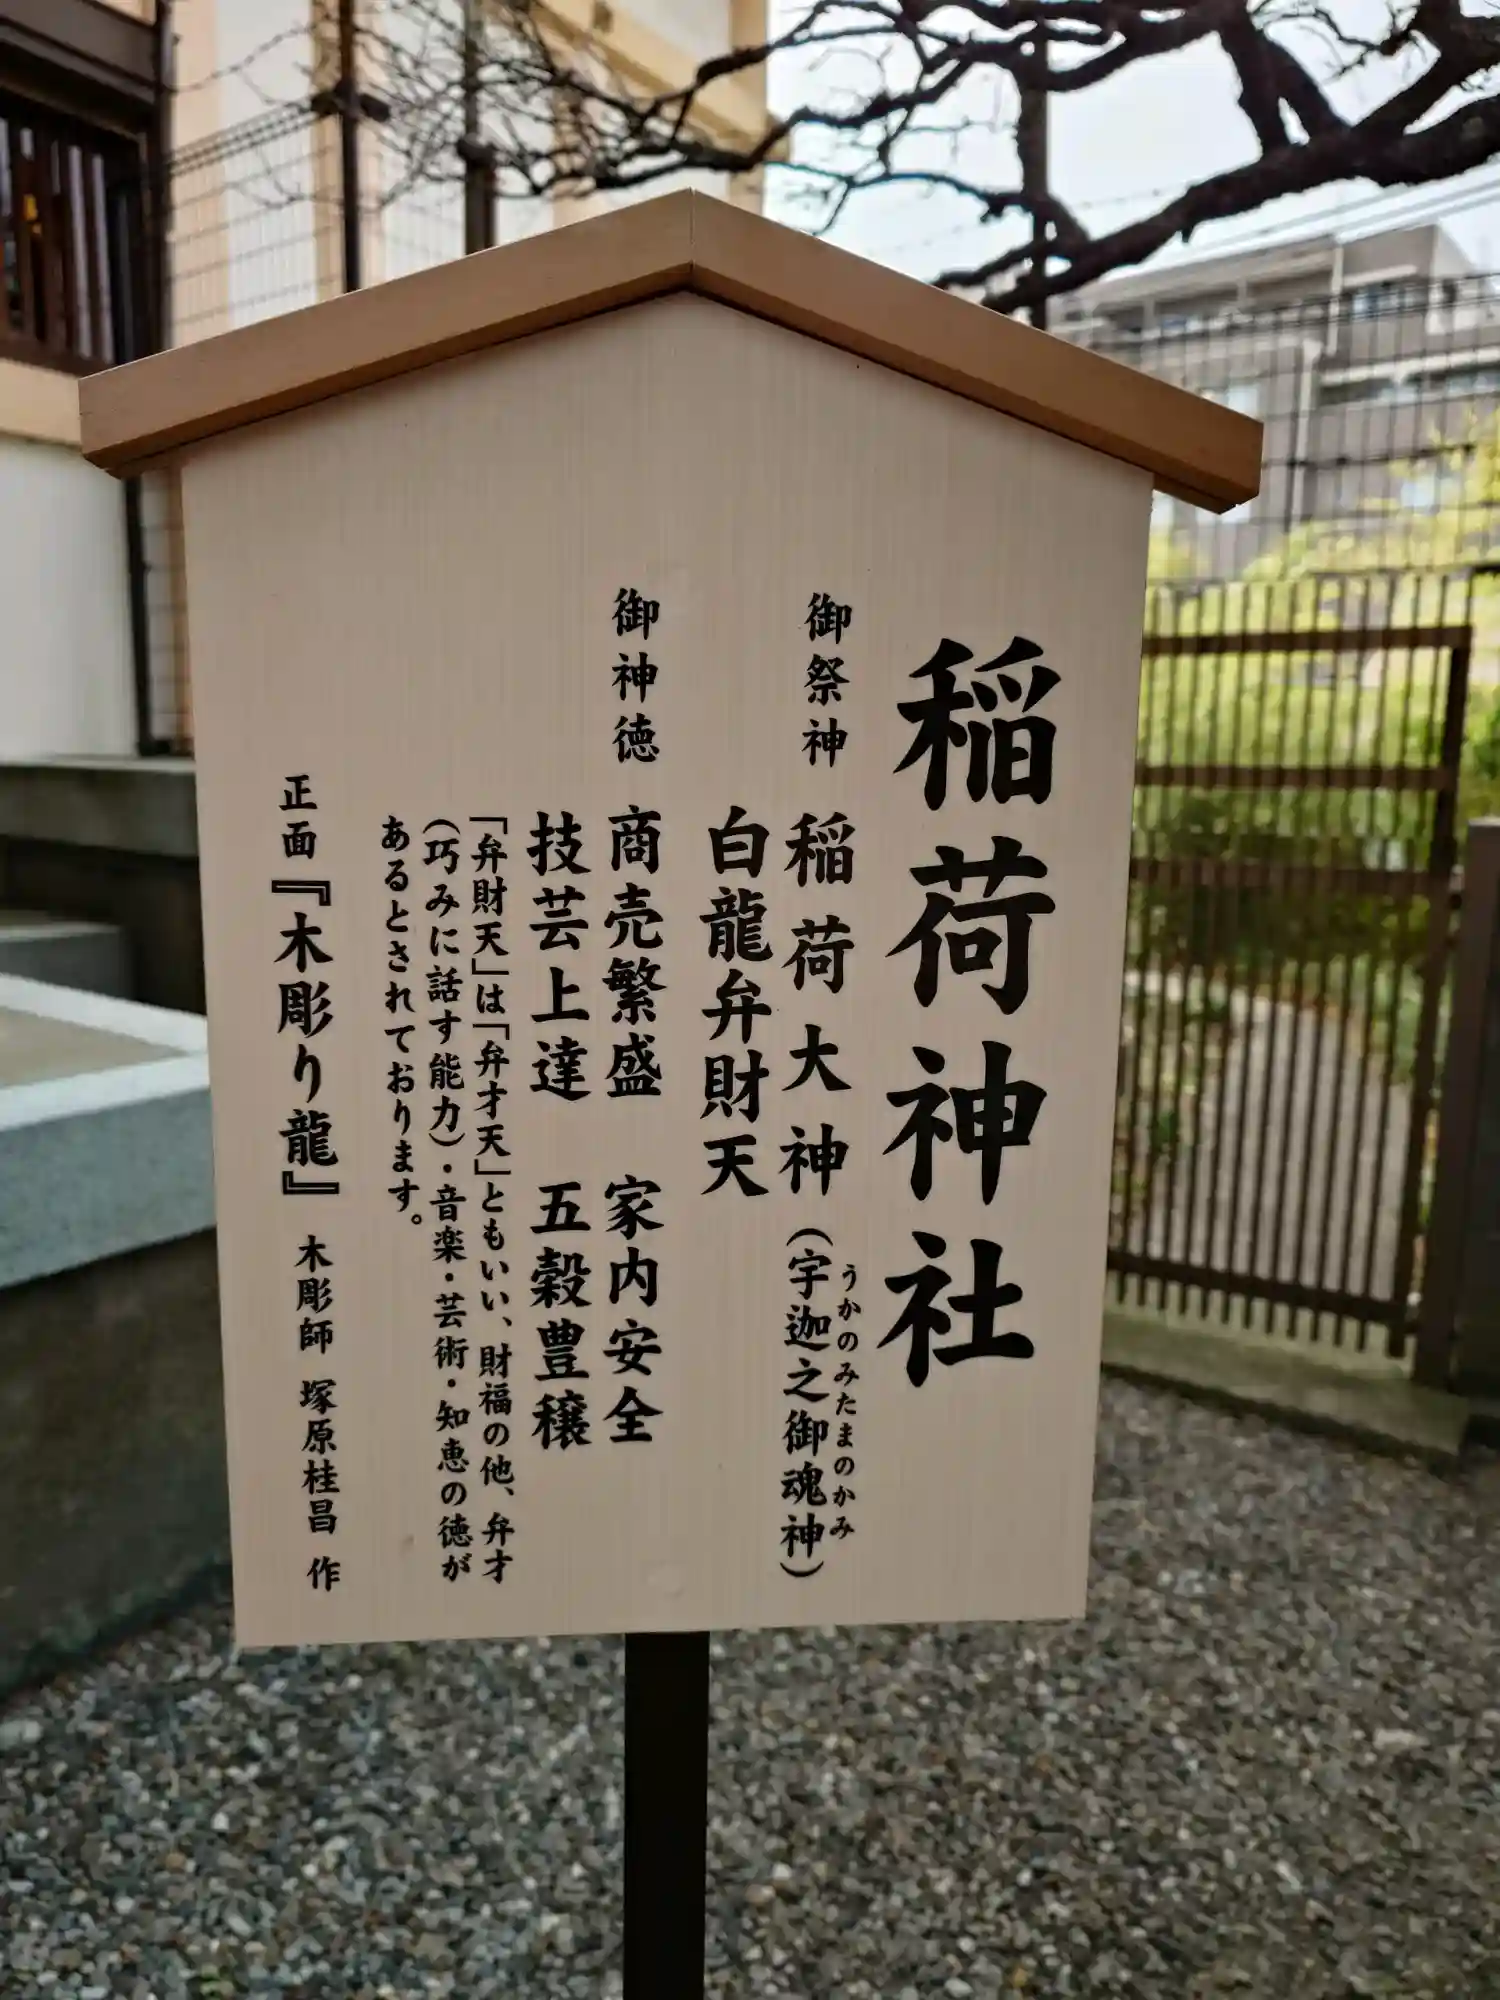 稲荷神社
御祭神 稲荷大神(宇迦之御魂神)
うかのみたまのかみ
白龍弁財天
御神徳 商売繁盛 家内安全
技芸上達 五穀豊穣
「弁財天」は「弁才天」ともいい、財福の他、弁才
(巧みに話す能力)・音楽・芸術・知恵の徳が
あるとされております。
正面『木彫り龍』 木彫師 塚原桂昌 作